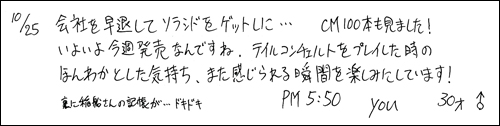 10/25 会社を早退してソラシドをゲットしに… CM100本も見ました!
いよいよ今週発売なんですね。テイルコンチェルトをプレイした時の
ほんわかとした気持ち、また感じられる瞬間を楽しみにしています!
更に稲船さんの記憶が…ドキドキ PM 5:50 you 30才 ♂